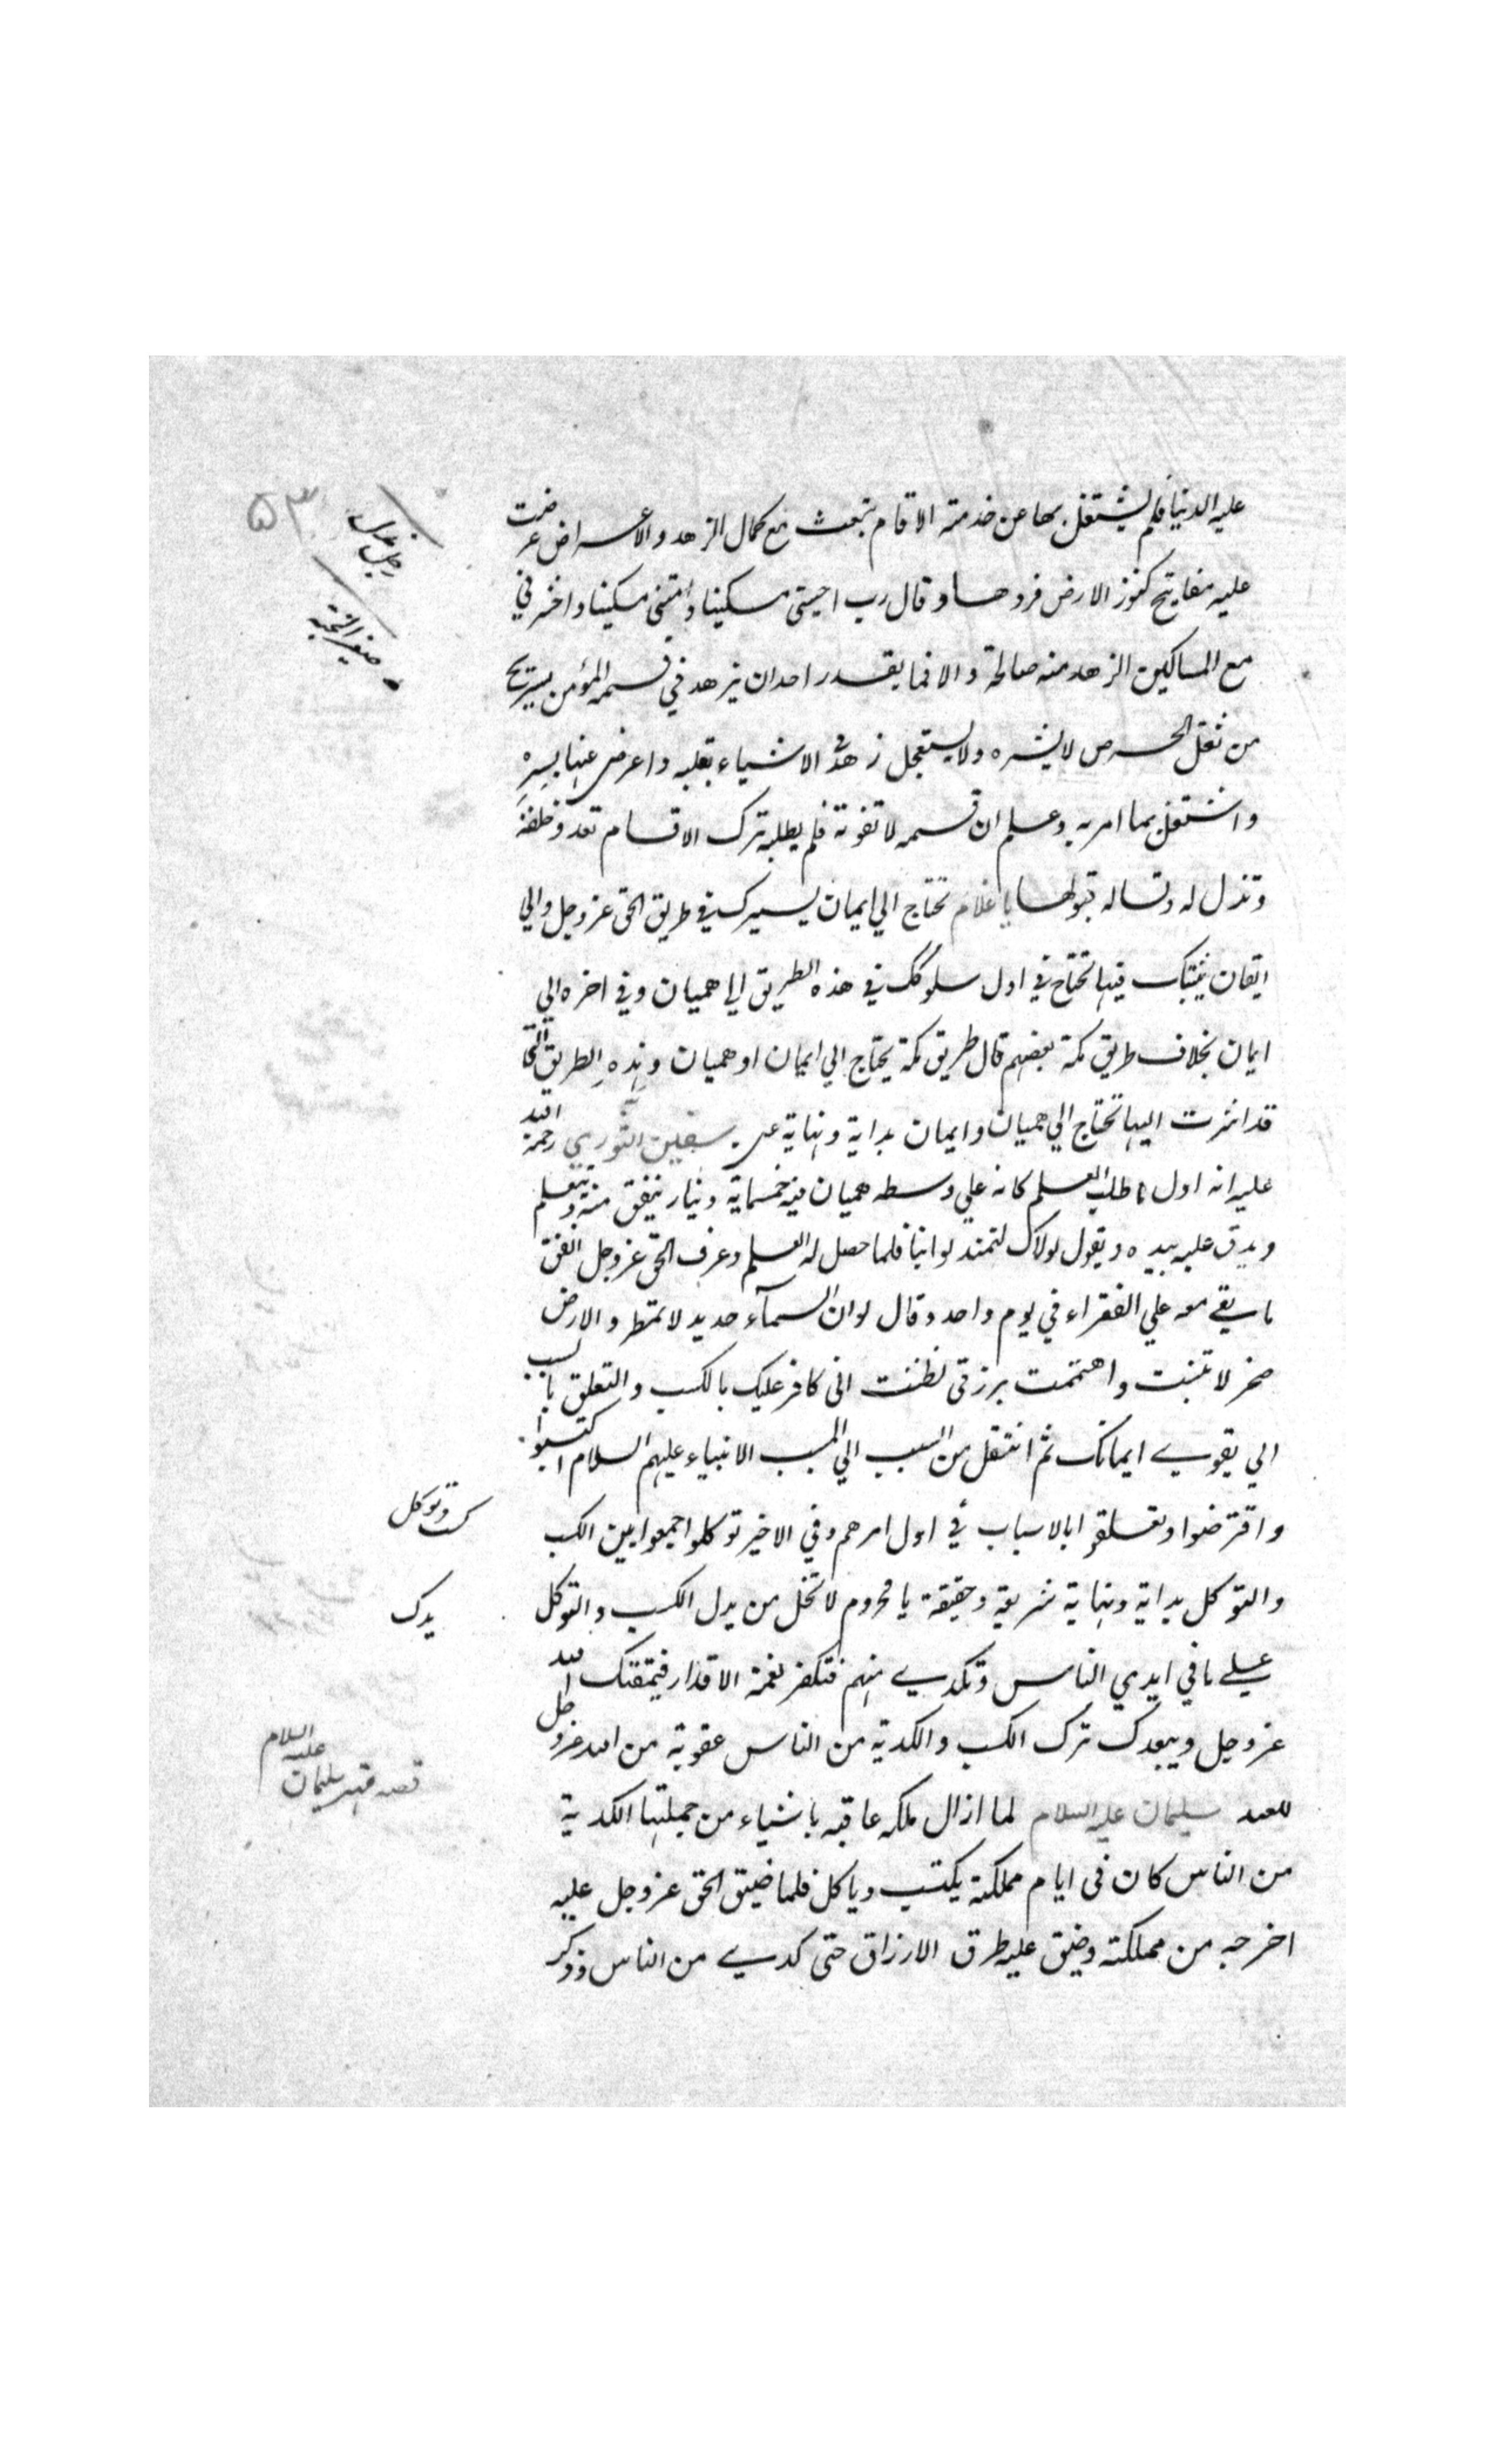 عليه الدنيا فلم يشتغل بها عن خدمته الاقسام تبعث مع كمال الزهد والاعراض عرضت
عليه مفاتيح كنوز الارض فردها وقال رب احيني مسكينا وامتني مسكينا واحشرني
مع المساكين الزهد منه صالحة والا فما يقدر احد ان يزهد في قسمه المؤمن يستريح
من ثقل الحرص لا يشره ولا يستعجل زهد في الاشياء بقلبه واعرض عنها بسره
واشتغل بما امر به وعلم ان قسمه لا تفوته فلم يطلبه ترك الاقسام تعدو خلفه
وتذل له وتساله قبولها يا غلام تحتاج الي ايمان يسيرك في طريق الحق عز وجل والي
ايقان يثبتك فيها تحتاج في اول سلوكك في هذه الطريق الي هميان وفي اخره الي
ايمان بخلاف طريق مكة بعضهم قال طريق مكة يحتاج الي ايمان او هميان وهذه الطريق التي
قد اشرت اليها تحتاج الي هميان وايمان بداية ونهاية عن سفين الثوري رحمة الله
عليه انه اول ما طلب العلم كانه علي وسطه هميان فيه خمسماية دينار ينفق منه ويتعلم
ويدق عليه بيده ويقول لولاك لتمندلوا بنا فلما حصل له العلم وعرف الحق عز وجل انفق
ما بقي معه علي الفقراء في يوم واحد وقال لو ان السمآء حديد لا تمطر والارض
صخر لا تنبت واهتممت برزقي لظننت اني كافر عليك بالكسب والتعلق بالسبب
الي يقوي ايمانك ثم انتقل من السبب الي المسبب الانبياء عليهم السلام اكتسبوا
واقترضوا وتعلقوا بالاسباب في اول امرهم وفي الاخير توكلوا جمعوا بين الكسب
والتوكل بداية ونهاية شريعة وحقيقة يا محروم لا تخل من يدك الكسب والتوكل
علي ما في ايدي الناس وتكدي منهم فتكفر نعمة الاقدار فيمقتك الله
عز وجل ويبعدك ترك الكسب والكدية من الناس عقوبة من الله عز وجل
للعبد سليمان عليه السلام لما ازال ملكه عاقبه باشياء من جملتها الكدية
من الناس كان في ايام مملكته يكتسب وياكل فلما ضيق الحق عز وجل عليه
اخرجه من مملكته وضيق عليه طرق الارزاق حتى كدي من الناس وذكر
٥٣
كسب وتوكل
يدك
قصه قهر سليمان عليه السلام